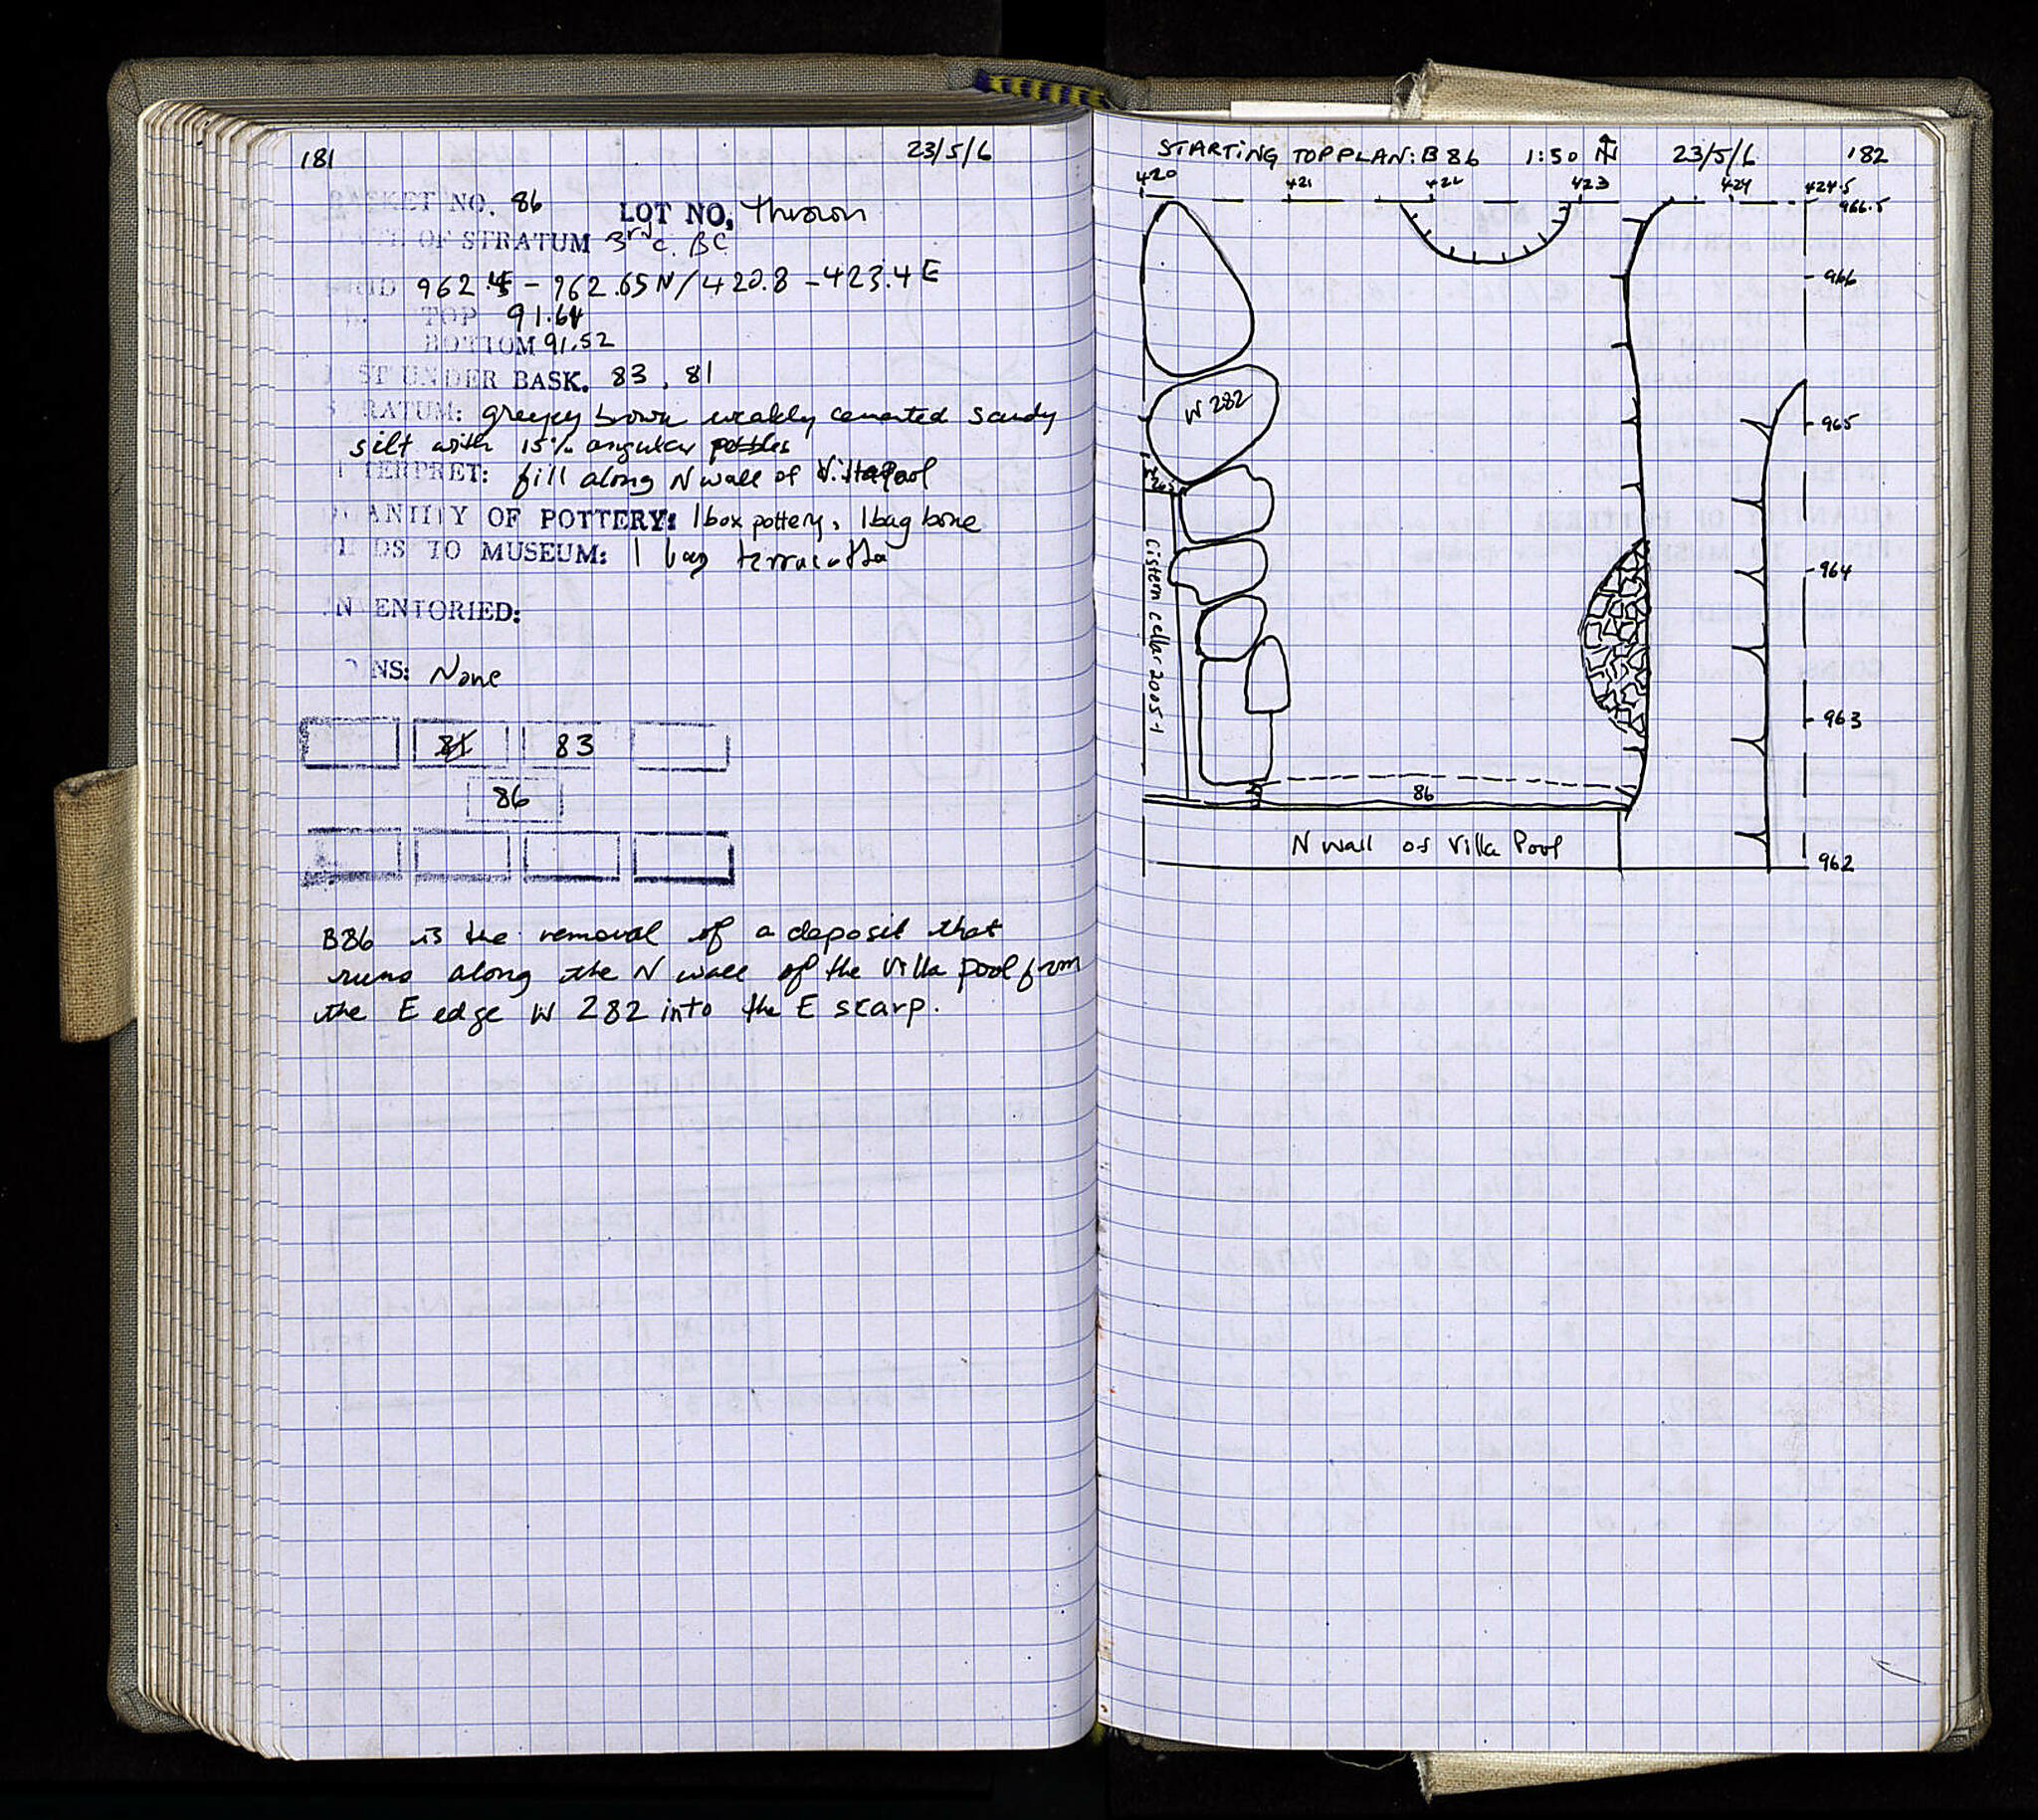 181 23/5/6
BASKET NO. 86 LOT NO. Thrown
DATE OF STRATUM 3rd c. BC
GRID 962.45 - 962.65 N / 420.8 - 423.4 E
TOP 91.64
BOTTOM 91.52
JUST UNDER BASK. 83, 81
STRATUM: greyey brown weakly cemented sandy
silt with 15% angular pebbles
INTERPRET: fill along N wall of Villa Pool
QUANTITY OF POTTERY: 1 box pottery, 1 bag bone
FINDS TO MUSEUM: 1 bag terracotta
INVENTORIED:
COINS: None
81 83
86
B86 is the removal of a deposit that
runs along the N wall of the Villa Pool from
the E edge W 282 into the E scarp.
STARTING TOP PLAN: B 86 1:50 N 23/5/6 182
420 421 422 423 424 424.5
966.5
966
W 282
965
964
cistern cellar 2005-1
963
86
N wall of Villa Pool
962